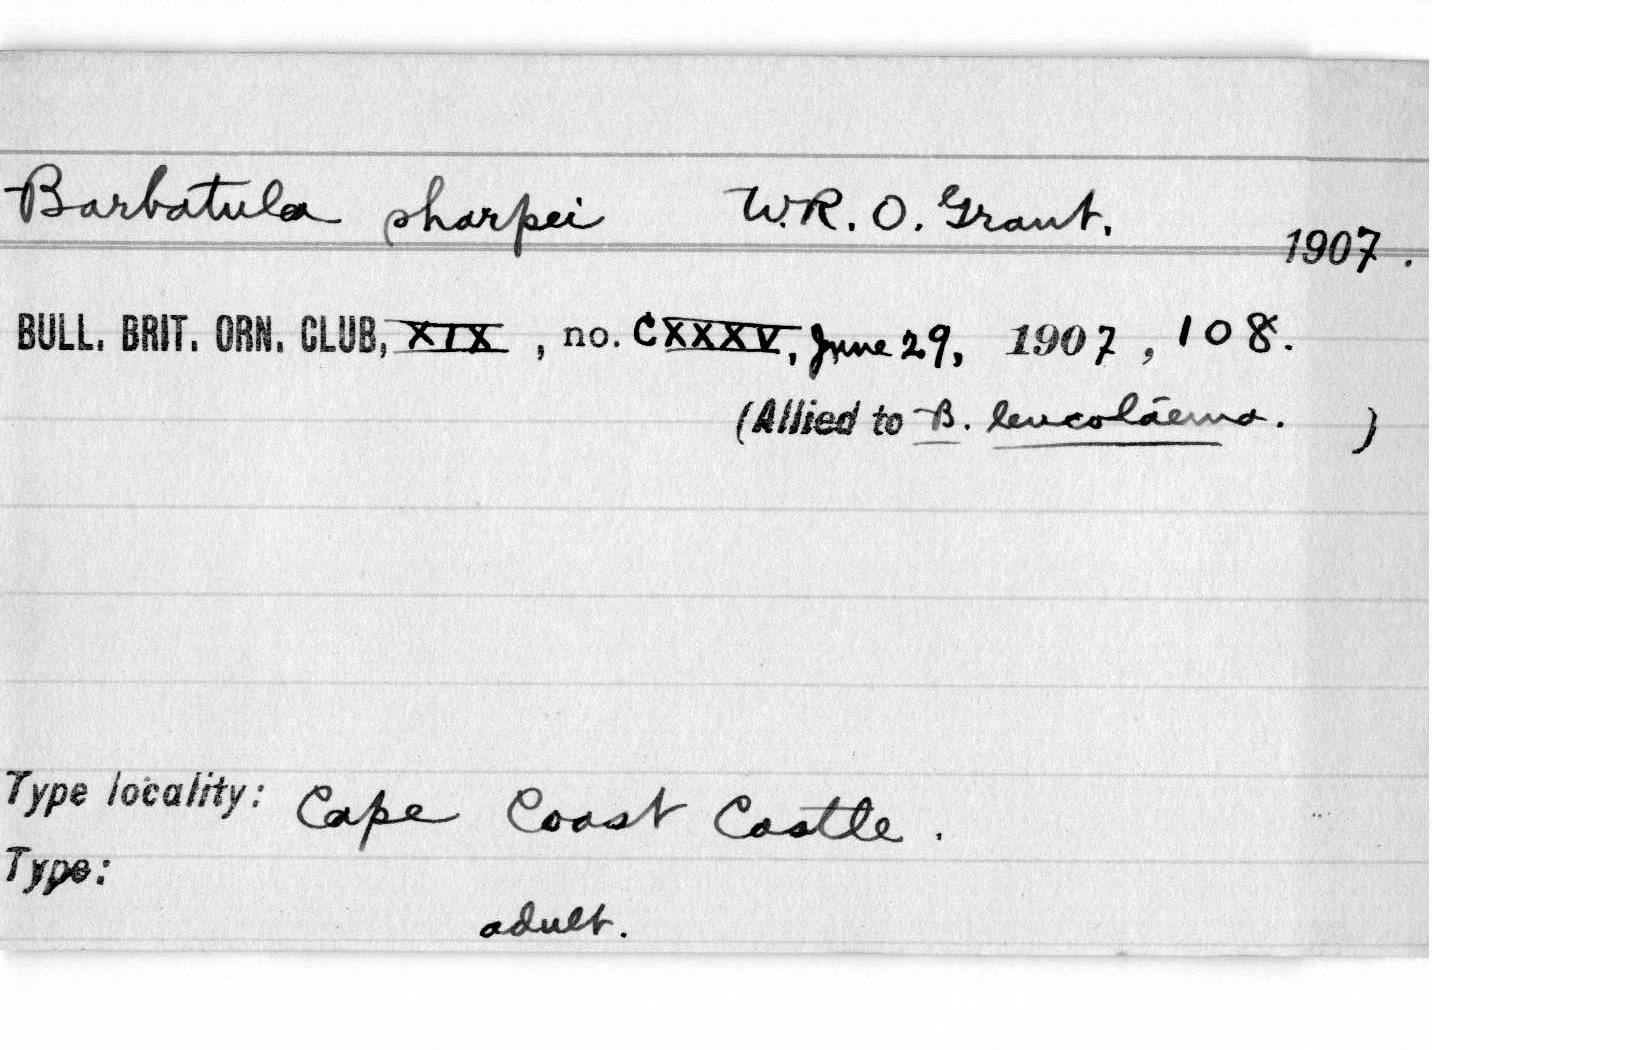 Barbatula sharpei W.R.O. Grant. 1907.
BULL. BRIT. ORN. CLUB, XIX, no. CXXXV, June 29, 1907, 108.
(Allied to B. leucolaema. )
Type locality: Cape Coast Castle.
Type:
adult.